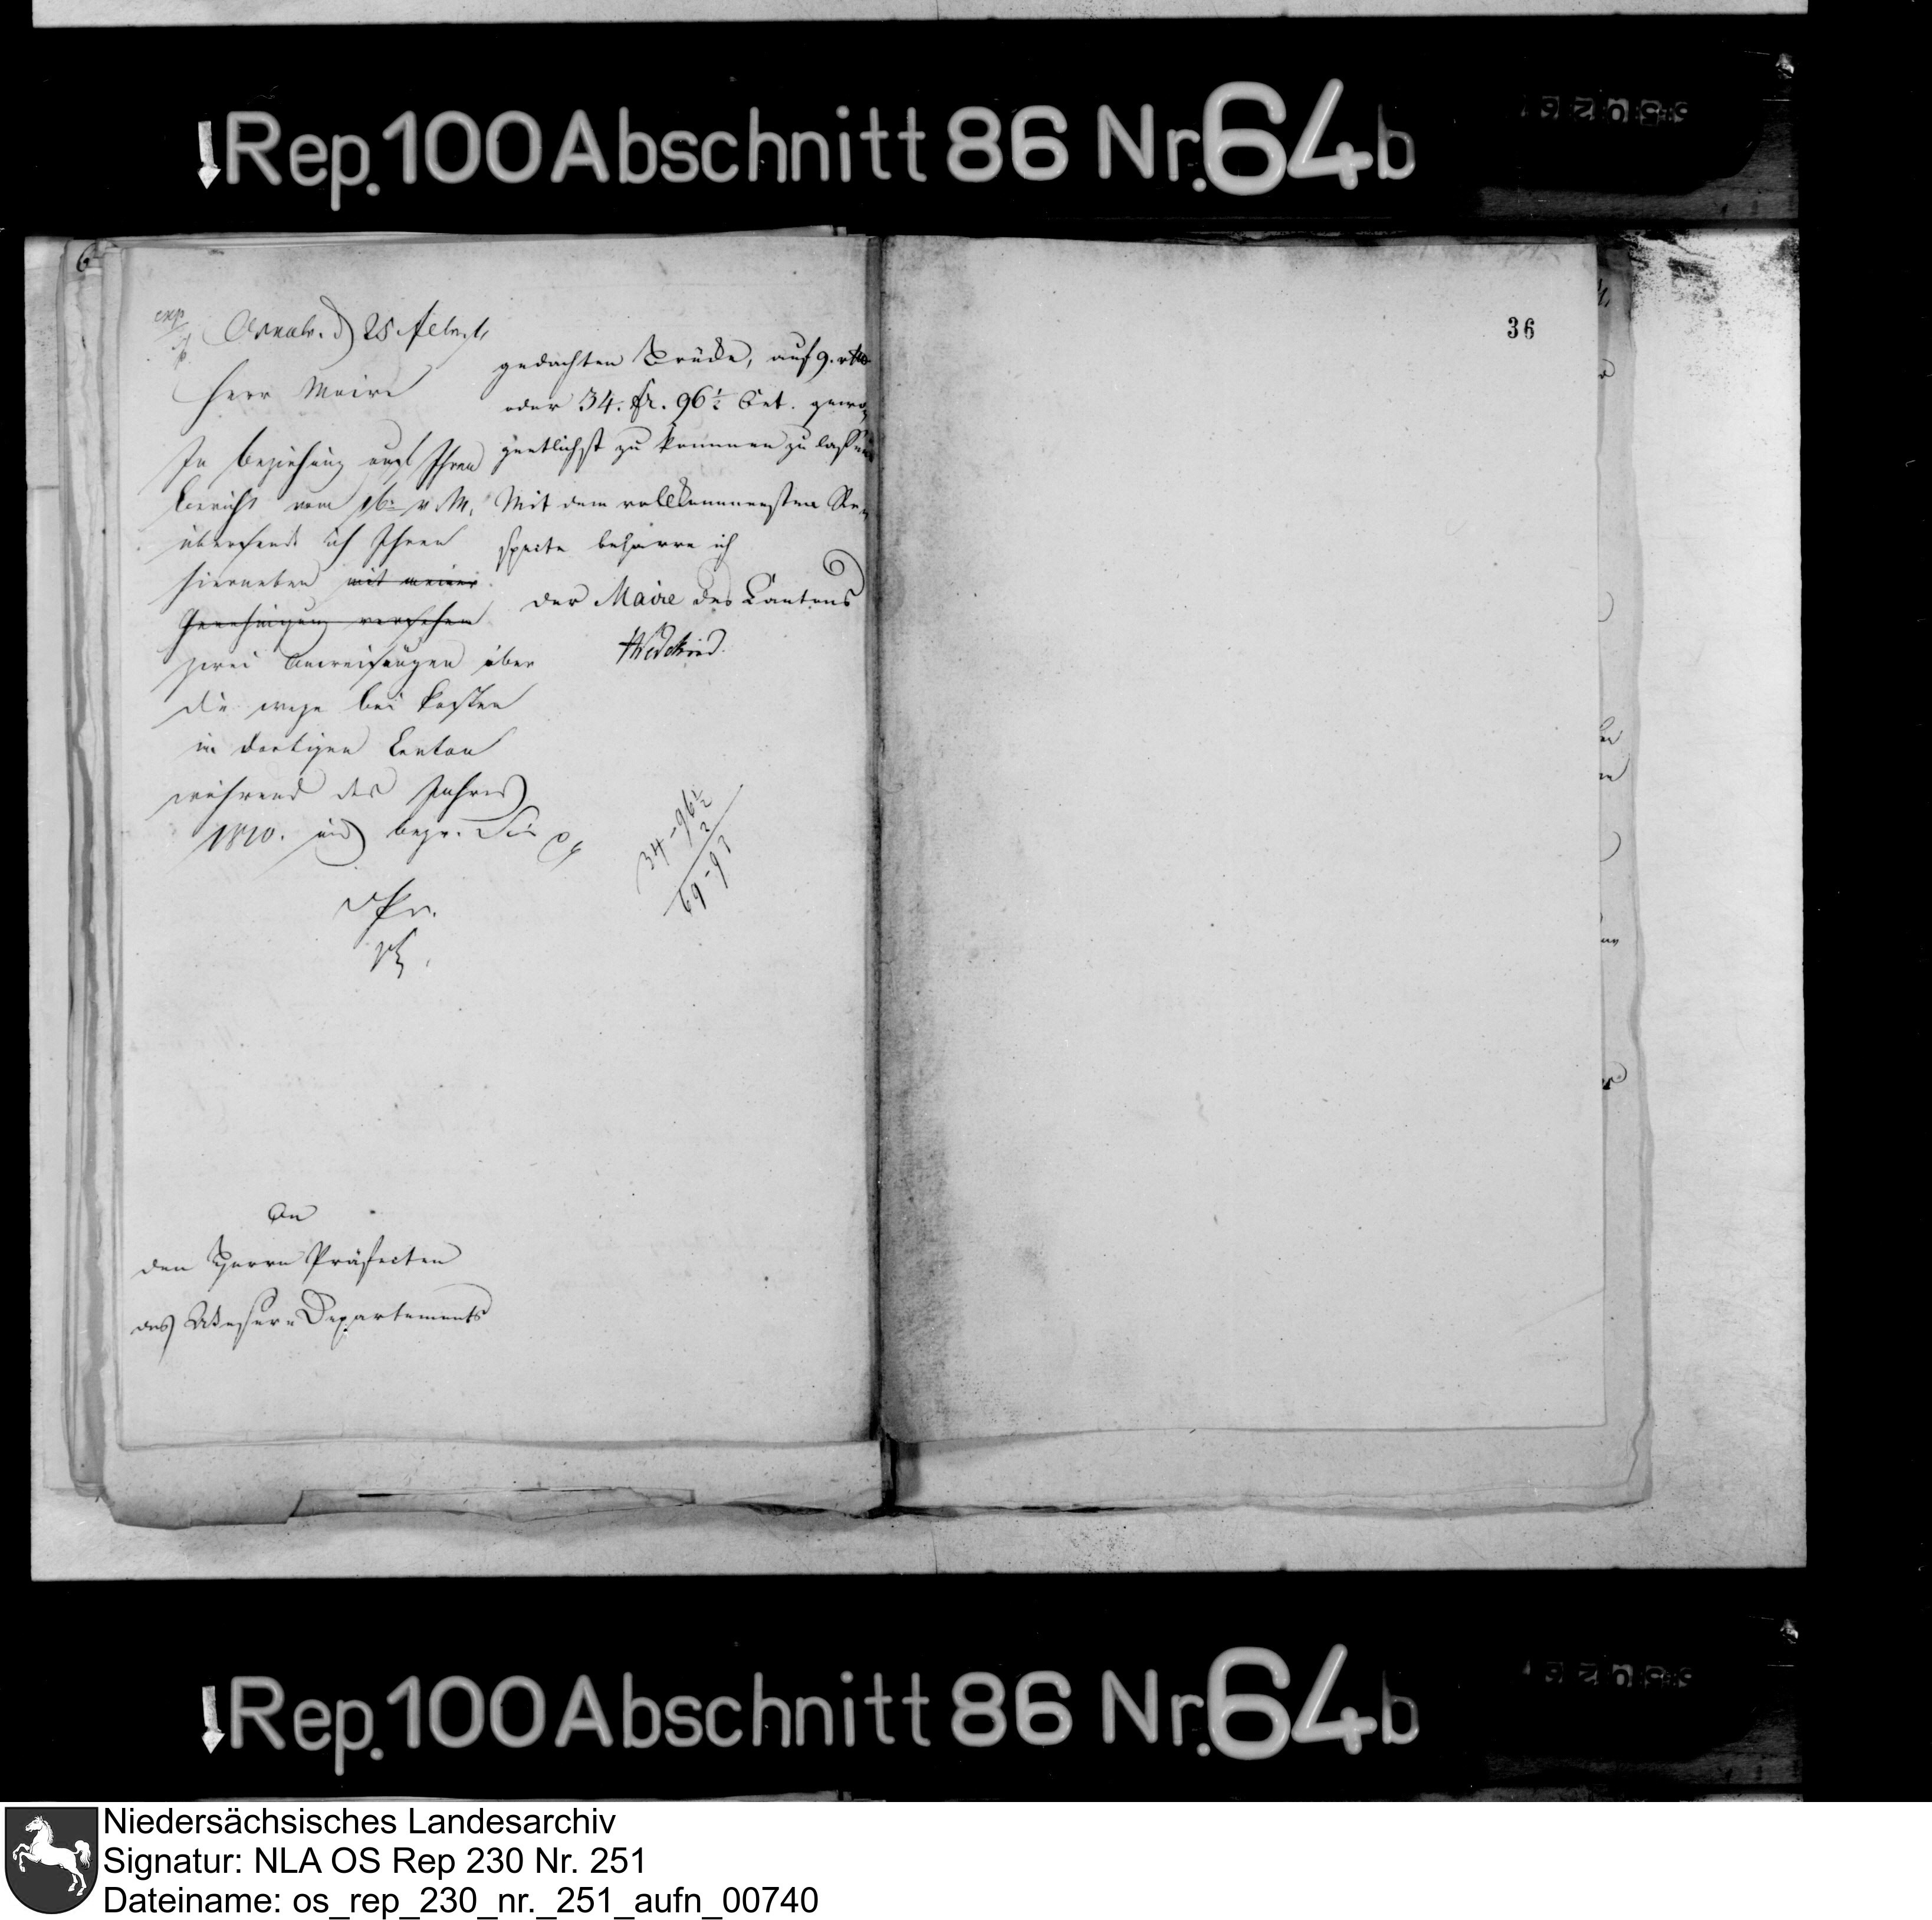 Rep. 100 Abschnitt 86 Nr. 64b
6
36
exp
Osnabr. d 25 Febr. 11
Herr Maire
In Beziehung auf Ihren
Bericht vom 16ⁿ v. M.
übersende ich Ihnen
hierneben mit meiner
Genehmigung versehen
zwei Anweisungen über
die wege bei kosten
im dortigen Canton
während des Jahres
1810. und
d Pr.
gedachten Brücke, auf 9. rtl
oder 34. fr. 96½ Cet. gewo„
gentlichst zu kommen zu lassen
Mit dem vollkommensten Re„
specte beharre ich
der Maire des Cantons
Wedekind.
34-96½
2
69-93
An
den Herrn Präfecten
des Weser-Departements
Rep. 100 Abschnitt 86 Nr. 64b
Niedersächsisches Landesarchiv
Signatur: NLA OS Rep 230 Nr. 251
Dateiname: os_rep_230_nr._251_aufn_00740